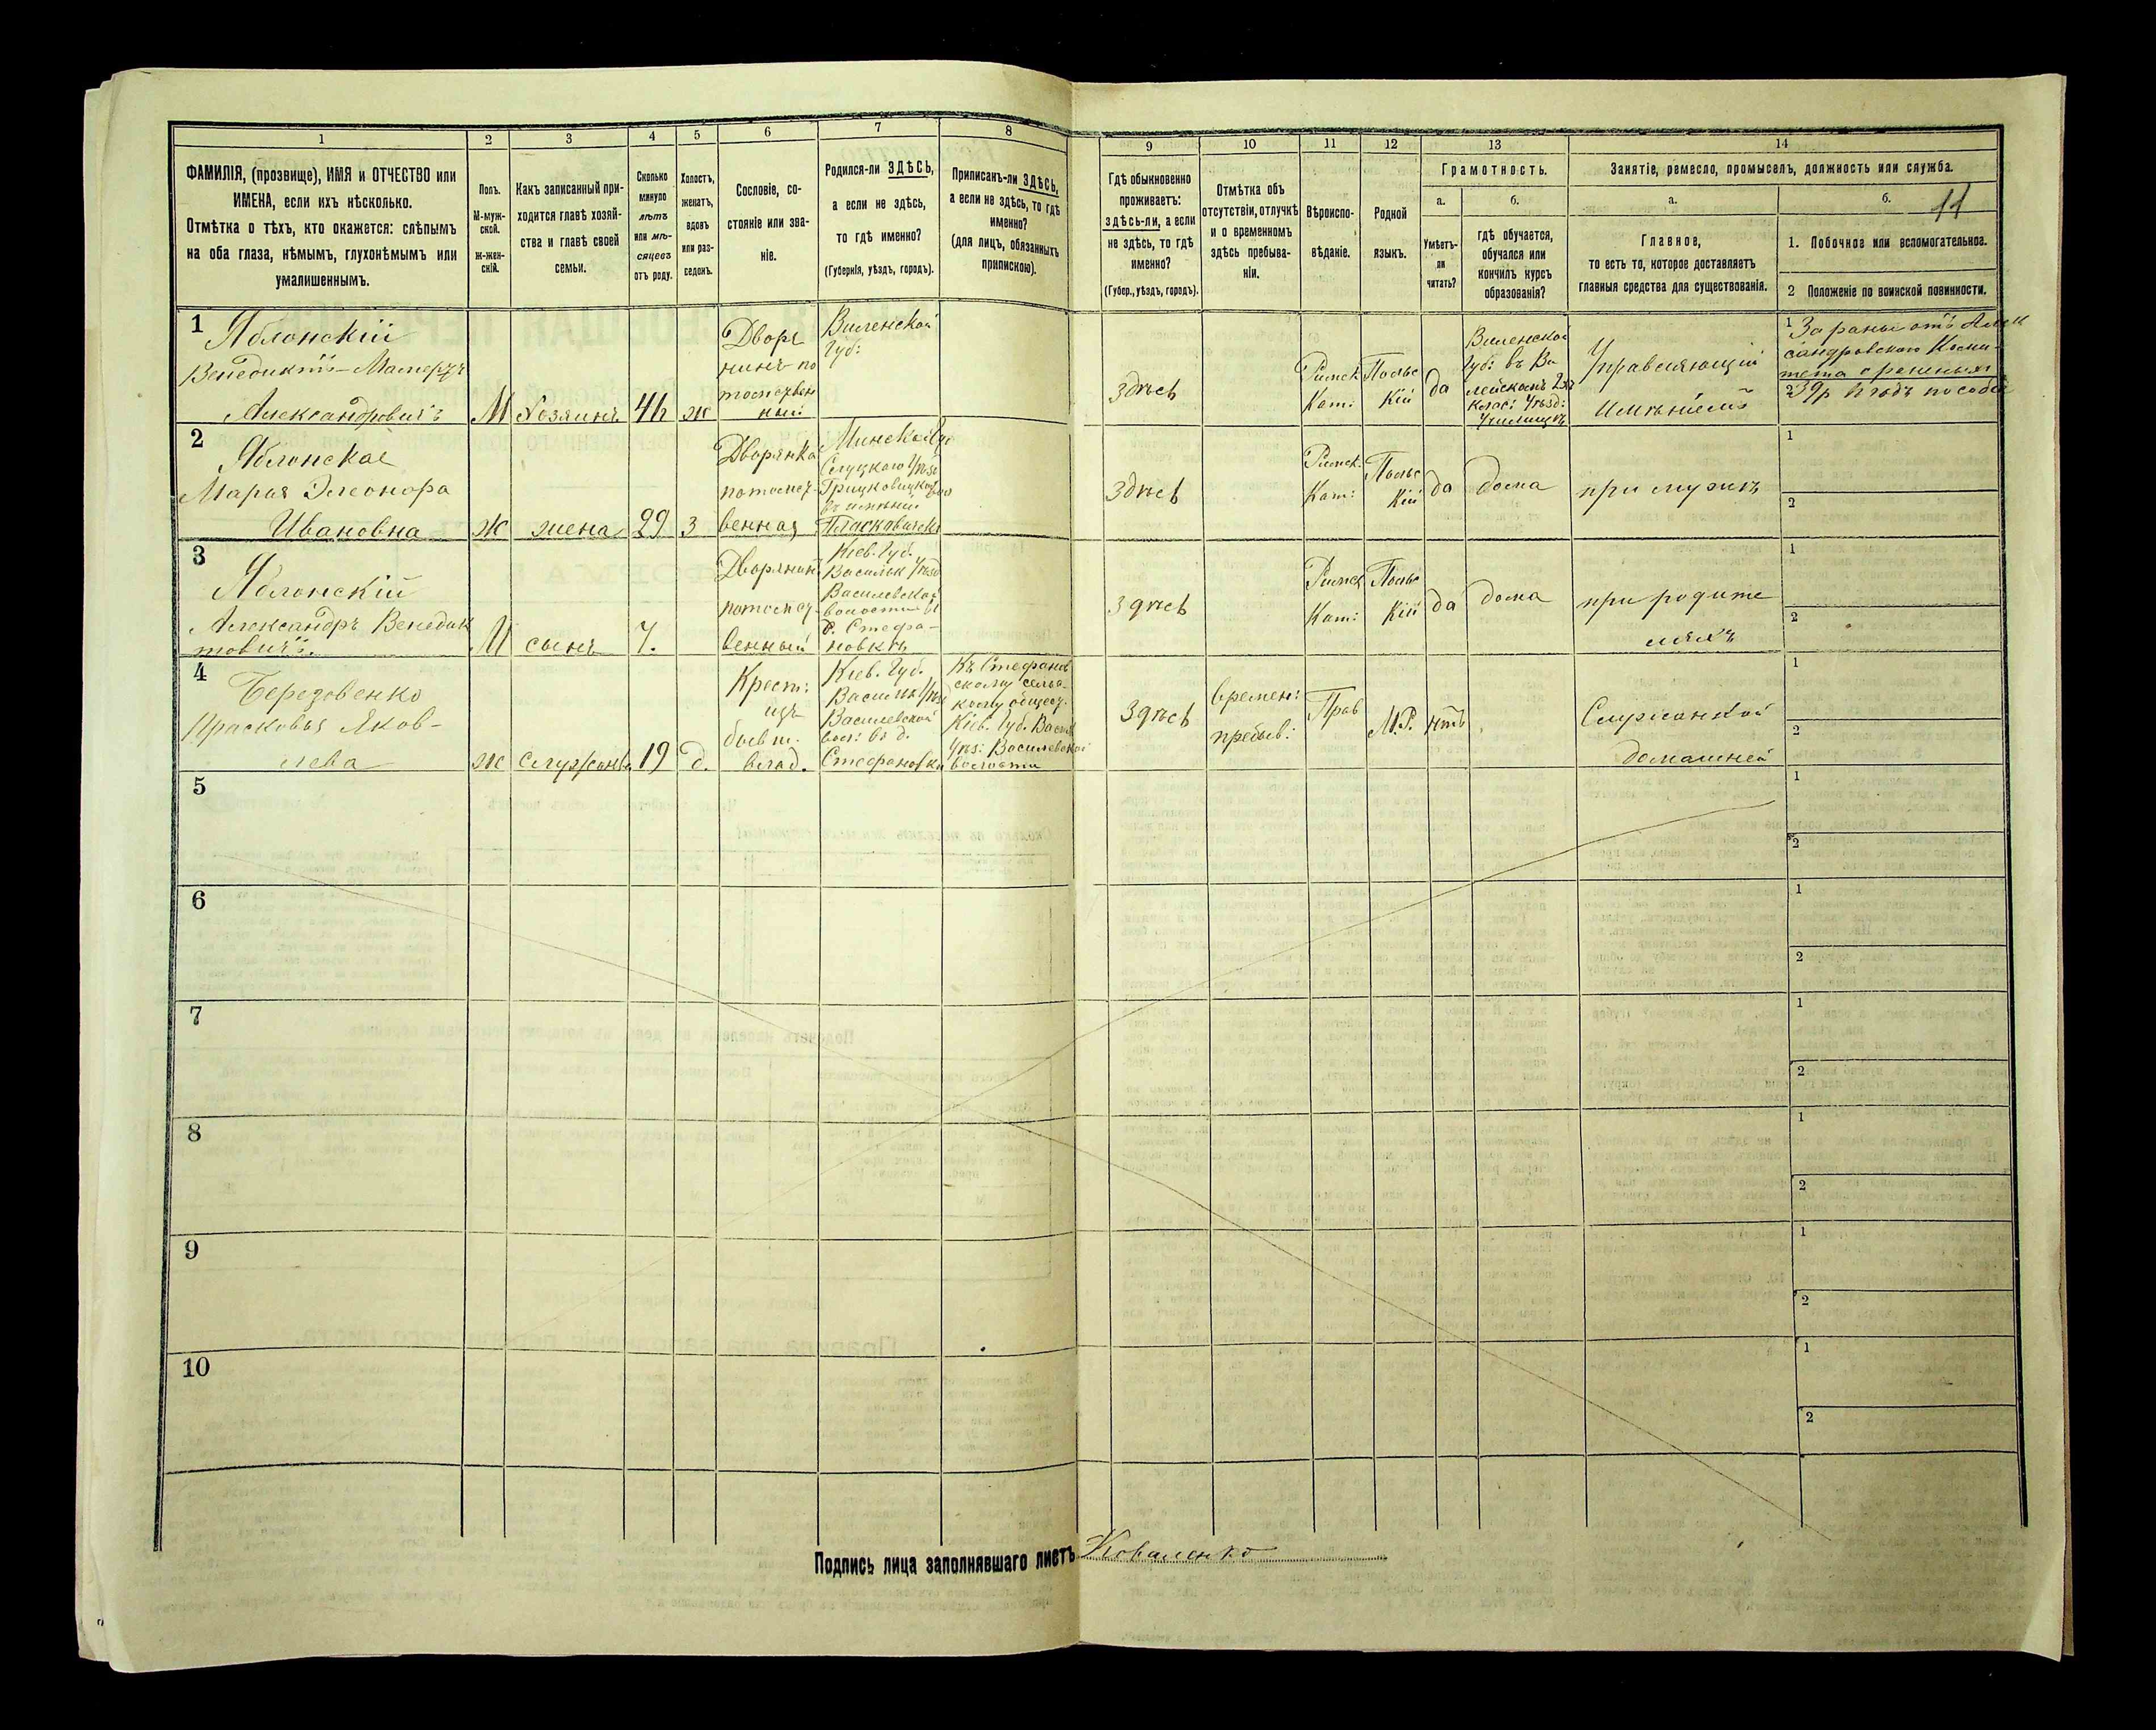 1 2 3 4 5 6 7 8 9 10 11 12 13 14
ФАМИЛІЯ, (прозвище), ИМЯ и ОТЧЕСТВО или
ИМЕНА, если ихъ нѣсколько.
Отмѣтка о тѣхъ, кто окажется: слѣпымъ
на оба глаза, нѣмымъ, глухонѣмымъ или
умалишеннымъ.
Полъ.
М-муж-
ской.
ж-жен-
скій.
Какъ записанный при-
ходится главѣ хозяй-
ства и главѣ своей
семьи.
Сколько
минуло
лѣтъ
или мѣ-
сяцевъ
отъ роду.
Холостъ,
женатъ,
вдовъ
или раз-
веденъ.
Сословіе, со-
стояніе или зва-
ніе.
Родился-ли ЗДѢСЬ,
а если не здѣсь,
то гдѣ именно?
(Губернія, уѣздъ, городъ).
Приписанъ-ли ЗДѢСЬ,
а если не здѣсь, то гдѣ
именно?
(для лицъ, обязанныхъ
припискою).
Гдѣ обыкновенно
проживаетъ:
здѣсь-ли, а если
не здѣсь, то гдѣ
именно?
(Губер., уѣздъ, городъ).
Отмѣтка объ
отсутствіи, отлучкѣ
и о временномъ
здѣсь пребыва-
ніи.
Вѣроиспо-
вѣданіе.
Родной
языкъ.
Грамотность.
а.
Умѣетъ-
ли
читать?
б.
гдѣ обучается,
обучался или
кончилъ курсъ
образованія?
Занятіе, ремесло, промыселъ, должность или служба.
а.
Главное,
то есть то, которое доставляетъ
главныя средства для существованія.
б. 11
1. Побочное или вспомогательное.
2 Положеніе по воинской повинности.
1 Яблонскій
Венедиктъ-
Александровичъ
М Хозяинъ ж
Дворя
нинъ по
томствен
ный
Виленской
Губ:
здѣсь
Римск
Кат:
Польс
кій
да
Виленской
Губ: въ Ви
лейскомъ 2хъ
клас: Уѣзд:
Училищѣ
Управляющій
Имѣніемъ
1 За раны отъ Алек
сандровскаго Коми-
тета о раненыхъ
2 39р въ годъ пособія
2 Яблонская
Марія Элеонора
Ивановна
Ж жена 29 з
Дворянка
потомст-
венная
Минской Гу
Слуцкаго Уѣзд
въ имѣніи
здѣсь
Римск.
Кат:
Польс
кій
да
дома
при мужѣ
1
2
3 Яблонскій
Александръ Венедик
товичъ.
М сынъ 7.
Дворянин
потомст-
венный
Кіев. Губ.
Васильк Уѣзд
Василевской
волости въ
д. Стефа-
новкѣ
здѣсь
Римск
Кат:
Польс
кій
да
дома
при родите
ляхъ
1
2
4 Березовенко
Прасковья Яков-
лева
Ж служанка 19 д.
Крест:
изъ
бывш.
влад.
Кіев. Губ.
Васильк Уѣзд
Василевской
вол: въ д.
Стефановки
Къ Стефанов
скому сельс
кому общест.
Кіев. Губ. Васильк
Уѣз: Василевской
волости
здѣсь
времен:
пребыв:
Прав
М.Р.
нѣтъ
Служанкой
домашней
1
2
5
1
2
6
1
2
7
1
2
8
1
2
9
1
2
10
1
2
Подпись лица заполнявшаго листъ Коваленко